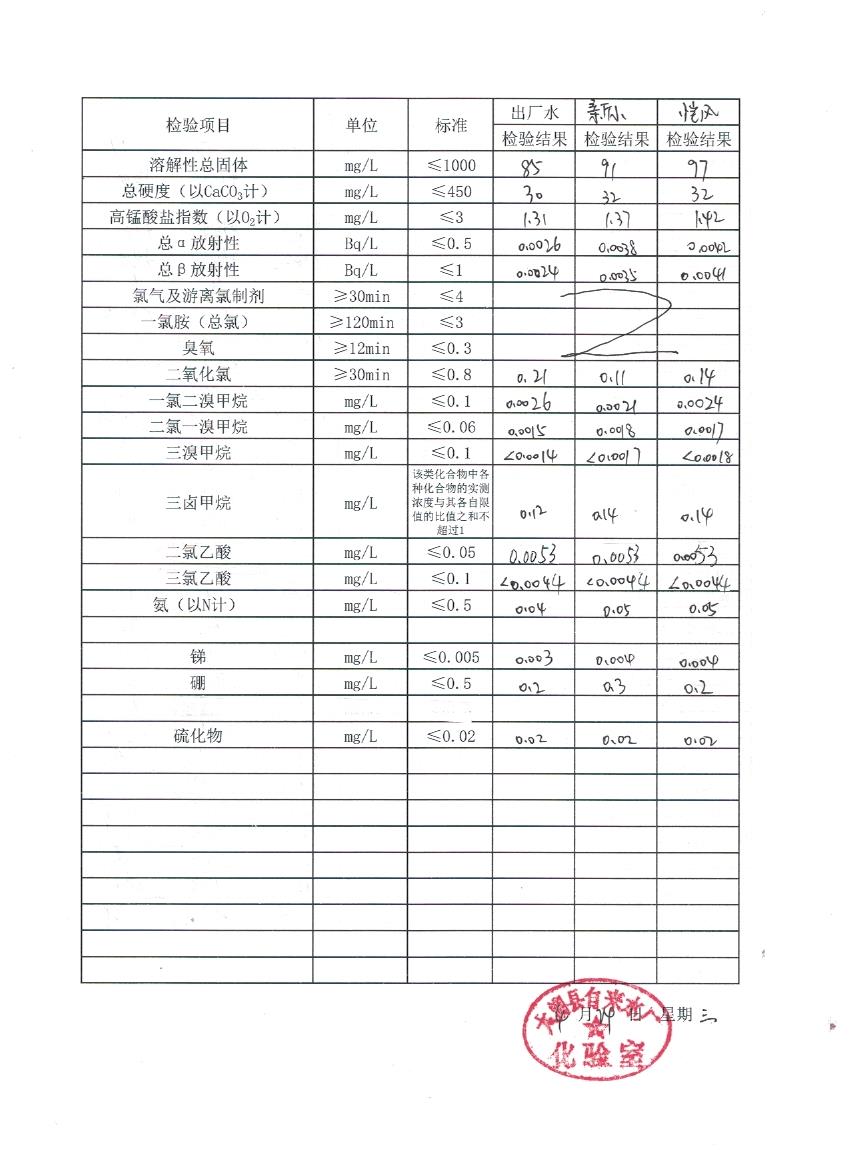 检验项目 单位 标准 出厂水
检验结果 检验结果 检验结果
溶解性总固体 mg/L ≤1000 85 91 97
总硬度（以CaCO₃计） mg/L ≤450 30 32 32
高锰酸盐指数（以O₂计） mg/L ≤3 1.31 1.37 1.42
总α放射性 Bq/L ≤0.5 0.0026 0.0038 0.0042
总β放射性 Bq/L ≤1 0.0024 0.0035 0.0041
氯气及游离氯制剂 ≥30min ≤4
一氯胺（总氯） ≥120min ≤3
臭氧 ≥12min ≤0.3
二氧化氯 ≥30min ≤0.8 0.21 0.11 0.14
一氯二溴甲烷 mg/L ≤0.1 0.0026 0.0021 0.0024
二氯一溴甲烷 mg/L ≤0.06 0.0015 0.0018 0.0017
三溴甲烷 mg/L ≤0.1 <0.0014 <0.0017 <0.0018
三卤甲烷 mg/L 该类化合物中各
种化合物的实测
浓度与其各自限
值的比值之和不
超过1
0.12 0.14 0.14
二氯乙酸 mg/L ≤0.05 0.0053 0.0053 0.0053
三氯乙酸 mg/L ≤0.1 <0.0044 <0.0044 <0.0044
氨（以N计） mg/L ≤0.5 0.04 0.05 0.05
锑 mg/L ≤0.005 0.003 0.004 0.004
硼 mg/L ≤0.5 0.2 0.3 0.2
硫化物 mg/L ≤0.02 0.02 0.02 0.02
县自来水厂
月 日 星期三
化验室